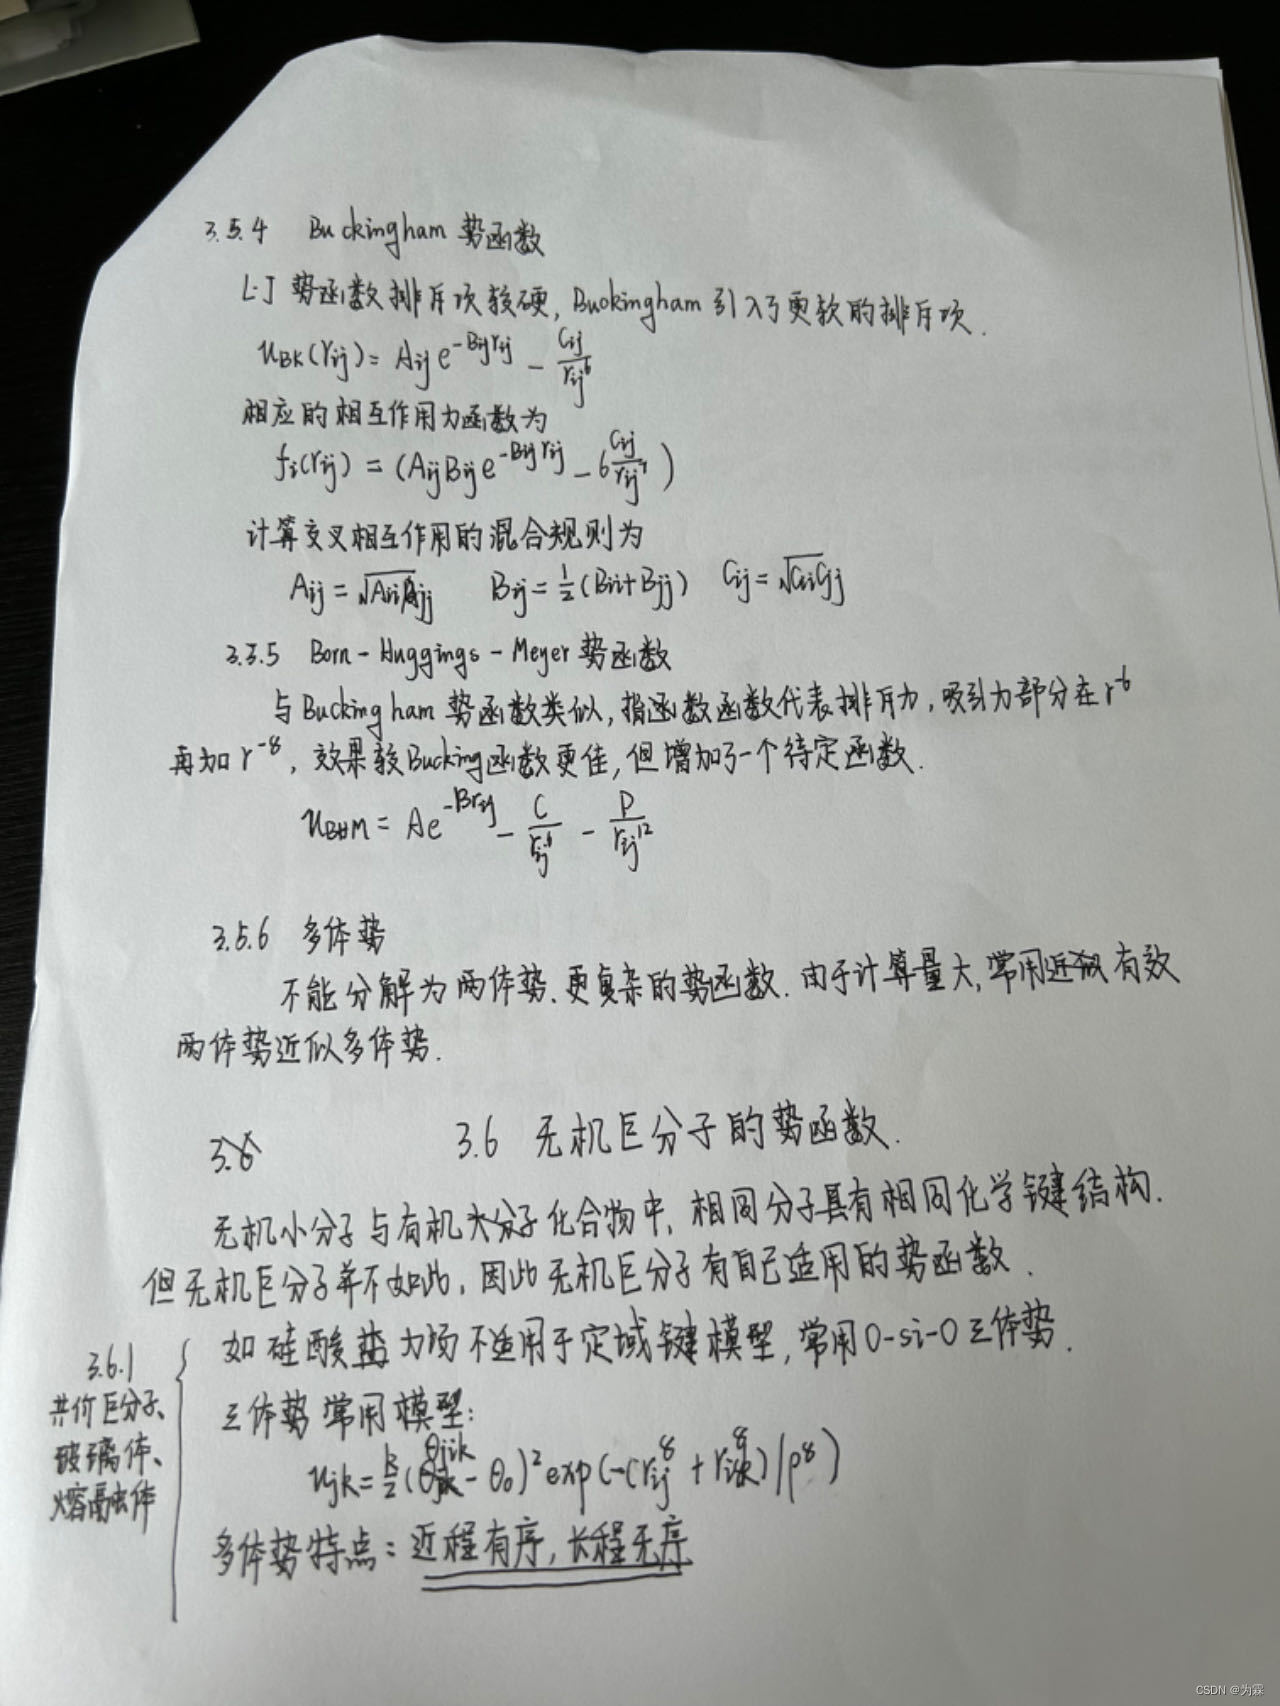 3.5.4 Buckingham 势函数
L-J 势函数排斥项较硬, Buckingham 引入了更软的排斥项.
u_BK(r_ij) = A_ij e^{-B_ij r_ij} - C_ij/r_ij^6
相应的相互作用力函数为
f_i(r_ij) = (A_ij B_ij e^{-B_ij r_ij} - 6 C_ij/r_ij^7)
计算交叉相互作用的混合规则为
A_ij = √(A_ii A_jj) B_ij = 1/2 (B_ii + B_jj) C_ij = √(C_ii C_jj)
3.3.5 Born-Huggings-Meyer 势函数
与Buckingham 势函数类似, 指函数函数代表排斥力, 吸引力部分在 r^-6
再加 r^-8, 效果较Bucking函数更佳, 但增加了一个待定函数.
u_BHM = Ae^{-Br_ij} - C/r_ij^6 - D/r_ij^12
3.5.6 多体势
不能分解为两体势、更复杂的势函数. 由于计算量大, 常用近似有效
两体势近似多体势.
3.6 3.6 无机巨分子的势函数.
无机小分子与有机大分子化合物中, 相同分子具有相同化学键结构.
但无机巨分子并不如此, 因此无机巨分子有自己适用的势函数.
如硅酸盐力场不适用于定域键模型, 常用O-si-O三体势.
3.6.1
共价巨分子、
玻璃体、
熔融体
三体势常用模型:
u_jk = k/2 (θ_jik - θ_0)^2 exp(-(r_ij^8 + r_ik^8)/ρ^8)
多体势特点: 近程有序, 长程无序
CSDN @为霖